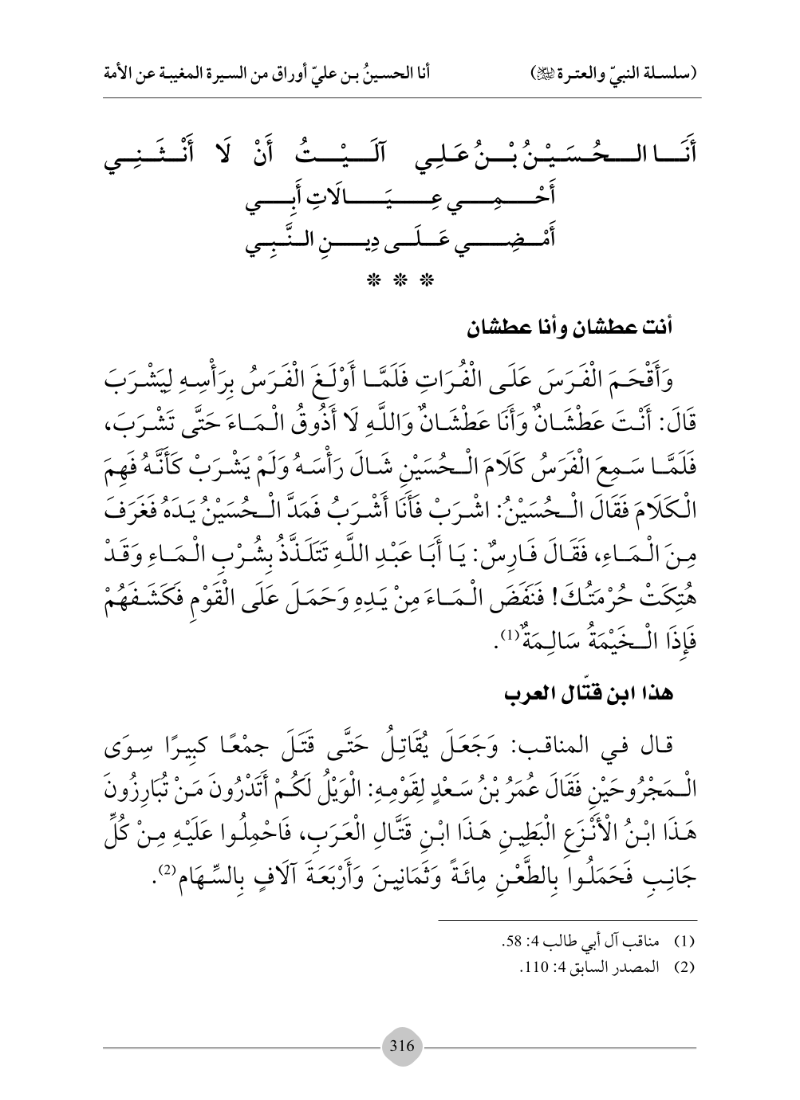 (سلسلة النبيّ والعترة ﷺ) أنا الحسينُ بن عليّ أوراق من السيرة المغيبة عن الأمة
أَنَــا الــحُـسَـيْـنُ بْــنُ عَـلِـي آلَــيْــتُ أَنْ لَا أَنْــثَــنِــي
أَحْــمِــي عِــيَــالَاتِ أَبِــي
أَمْــضِــي عَــلَــى دِيــنِ الــنَّــبِــي
* * *
أنت عطشان وأنا عطشان
وَأَقْحَمَ الْفَرَسَ عَلَى الْفُرَاتِ فَلَمَّا أَوْلَغَ الْفَرَسُ بِرَأْسِهِ لِيَشْرَبَ
قَالَ: أَنْتَ عَطْشَانٌ وَأَنَا عَطْشَانٌ وَاللَّهِ لَا أَذُوقُ الْمَاءَ حَتَّى تَشْرَبَ،
فَلَمَّا سَمِعَ الْفَرَسُ كَلَامَ الْحُسَيْنِ شَالَ رَأْسَهُ وَلَمْ يَشْرَبْ كَأَنَّهُ فَهِمَ
الْكَلَامَ فَقَالَ الْحُسَيْنُ: اشْرَبْ فَأَنَا أَشْرَبُ فَمَدَّ الْحُسَيْنُ يَدَهُ فَغَرَفَ
مِنَ الْمَاءِ، فَقَالَ فَارِسٌ: يَا أَبَا عَبْدِ اللَّهِ تَتَلَذَّذُ بِشُرْبِ الْمَاءِ وَقَدْ
هُتِكَتْ حُرْمَتُكَ! فَنَفَضَ الْمَاءَ مِنْ يَدِهِ وَحَمَلَ عَلَى الْقَوْمِ فَكَشَفَهُمْ
فَإِذَا الْخَيْمَةُ سَالِمَةٌ(1).
هذا ابن قتّال العرب
قال في المناقب: وَجَعَلَ يُقَاتِلُ حَتَّى قَتَلَ جمْعًا كبيرًا سِوَى
الْمَجْرُوحَيْنِ فَقَالَ عُمَرُ بْنُ سَعْدٍ لِقَوْمِهِ: الْوَيْلُ لَكُمْ أَتَدْرُونَ مَنْ تُبَارِزُونَ
هَذَا ابْنُ الْأَنْزَعِ الْبَطِينِ هَذَا ابْنِ قَتَّالِ الْعَرَبِ، فَاحْمِلُوا عَلَيْهِ مِنْ كُلِّ
جَانِبٍ فَحَمَلُوا بِالطَّعْنِ مِائَةً وَثَمَانِينَ وَأَرْبَعَةَ آلَافٍ بِالسِّهَامِ(2).
(1) مناقب آل أبي طالب 4: 58.
(2) المصدر السابق 4: 110.
316